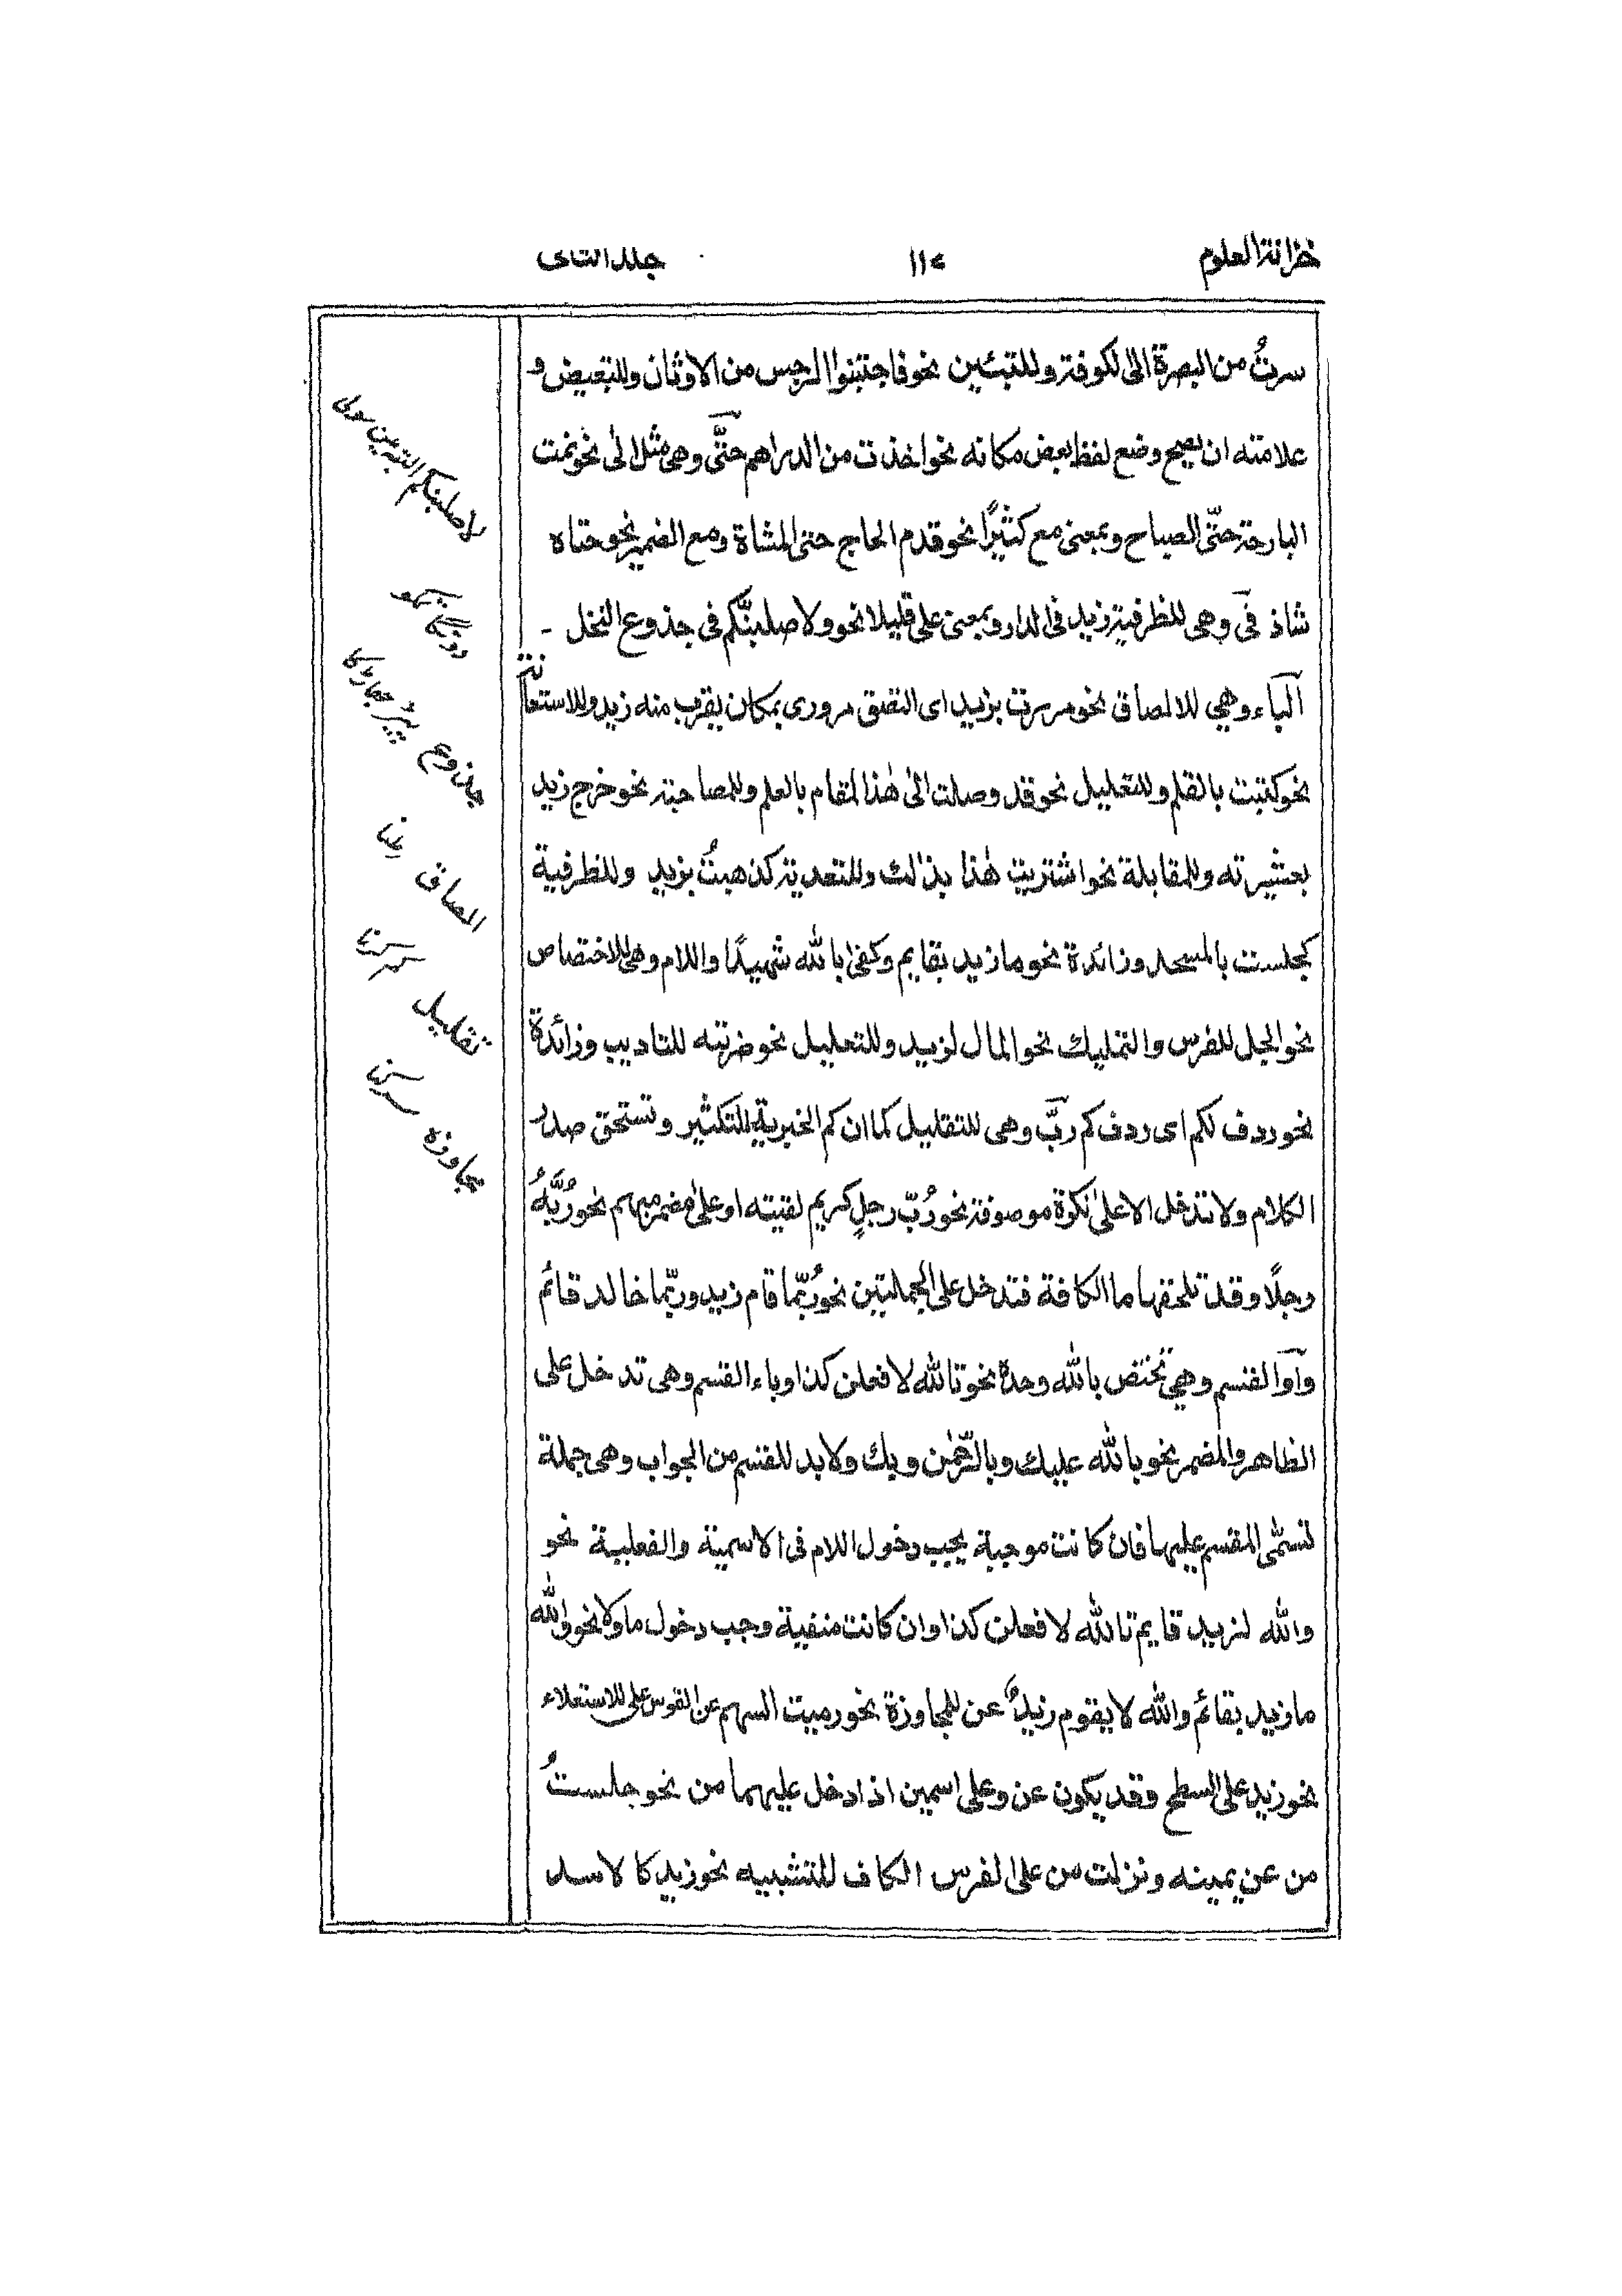 خزانة العلوم
جلد الثانی
سرتُ من البصرة الی الكوفة وللتبئين نحو فاجتنبوا الرجس من الاوثان وللتبعيض و
علامته ان يصح وضع لفظ بعض مكانه نحو اخذت من الدراهم حتّٰی وهی مثل الٰی نحو نمت
البارحة حتّی الصباح وبمعنی مع كثيرًا نحو قدم الحاج حتی المشاة ومع الضمير نحو حتاه
شاذ فی وهی للظرفية زيد فی الدار وبمعنی علی قليلا نحو ولاصلبنّكم فی جذوع النخل -
الباء وهی للالصاق نحو مررت بزيد ای التصق مروری بمكان يقرب منه زيد وللاستعانة
نحو كتبت بالقلم وللتعليل نحو قد وصلت الٰی هٰذا لمقام بالعلم وللمصاحبة نحو خرج زيد
بعشيرته وللمقابلة نحو اشتريت هٰذا بذٰلك وللتعدية كذهبتُ بزيد وللظرفية
كجلست بالمسجد وزائدة نحو ما زيد بقايم وكفیٰ بالله شهيدًا واللام وهی للاختصاص
نحو الجل للفرس والتمليك نحو المال لزيد وللتعليل نحو ضربته للتاديب وزائدة
نحو ردف لكم ای ردف كم ربّ وهی للتقليل كما ان كم الخبرية للتكثير وتستحق صدر
الكلام ولا تدخل الا علیٰ نكرة موصوفة نحو رُبّ رجلٍ كريم لقيته او علیٰ مضمر مبهم نحو رُبَّهُ
رجلًا وقد تلحقها ما الكافة فتدخل علی الجملتين نحو رُبّما قام زيد وربّما خالد قائم
واو القسم وهی تختص بالله وحدهٗ نحو تالله لافعلن كذا وباء القسم وهی تدخل علی
الظاهر والمضمر نحو بالله عليك وبالرّحمٰن وبك ولابد للقسم من الجواب وهی جملة
تسمّٰی المقسم عليها فان كانت موجبة يجب دخول اللام فی الاسمية والفعلية نحو
والله لزيد قايم تالله لافعلن كذا وان كانت منفية وجب دخول ما ولا نحو والله
ما زيد بقائم والله لا يقوم زيدٌ عن للمجاوزة نحو رميت السهم عن القوس علی للاستعلاء
نحو زيد علی السطح وقد يكون عن وعلی اسمين اذا دخل عليهما من نحو جلستُ
من عن يمينه ونزلت من علی الفرس الكاف للتشبيه نحو زيد كالاسد
لأصلبنكم
جذوع
الصاق
تقليل کم کرنا
مجاوزه